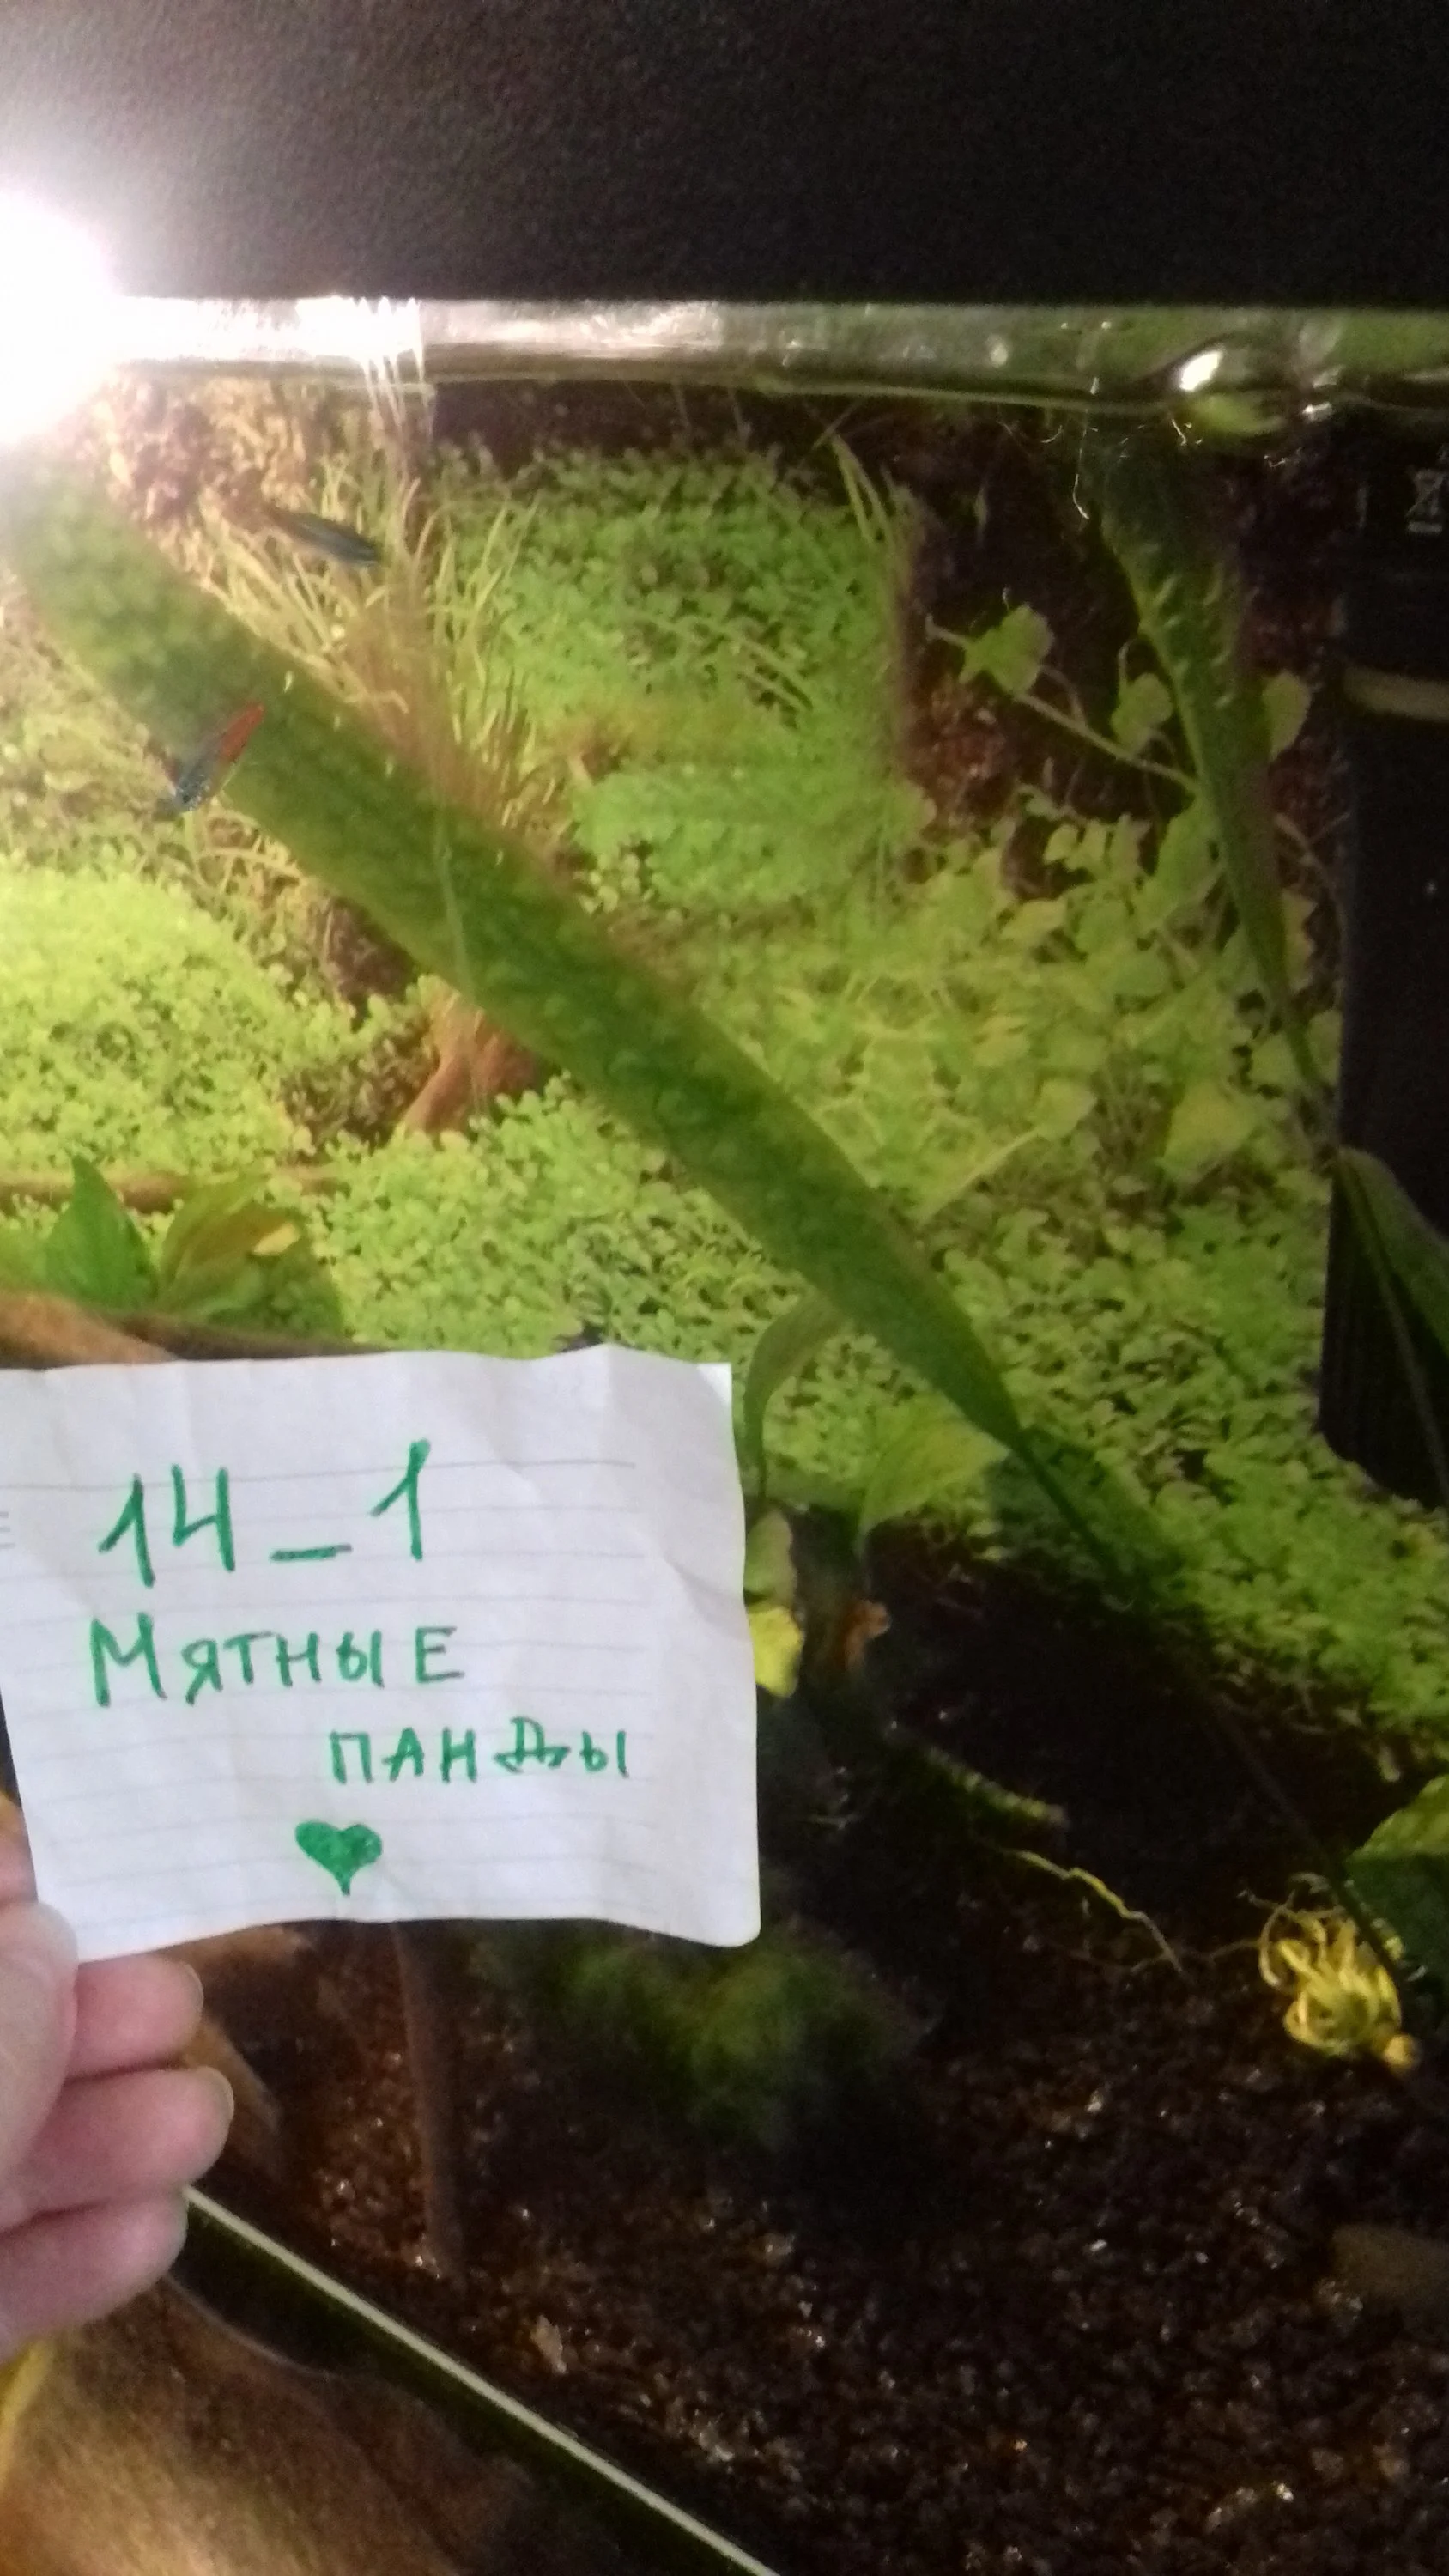 14_1
Мятные
панды